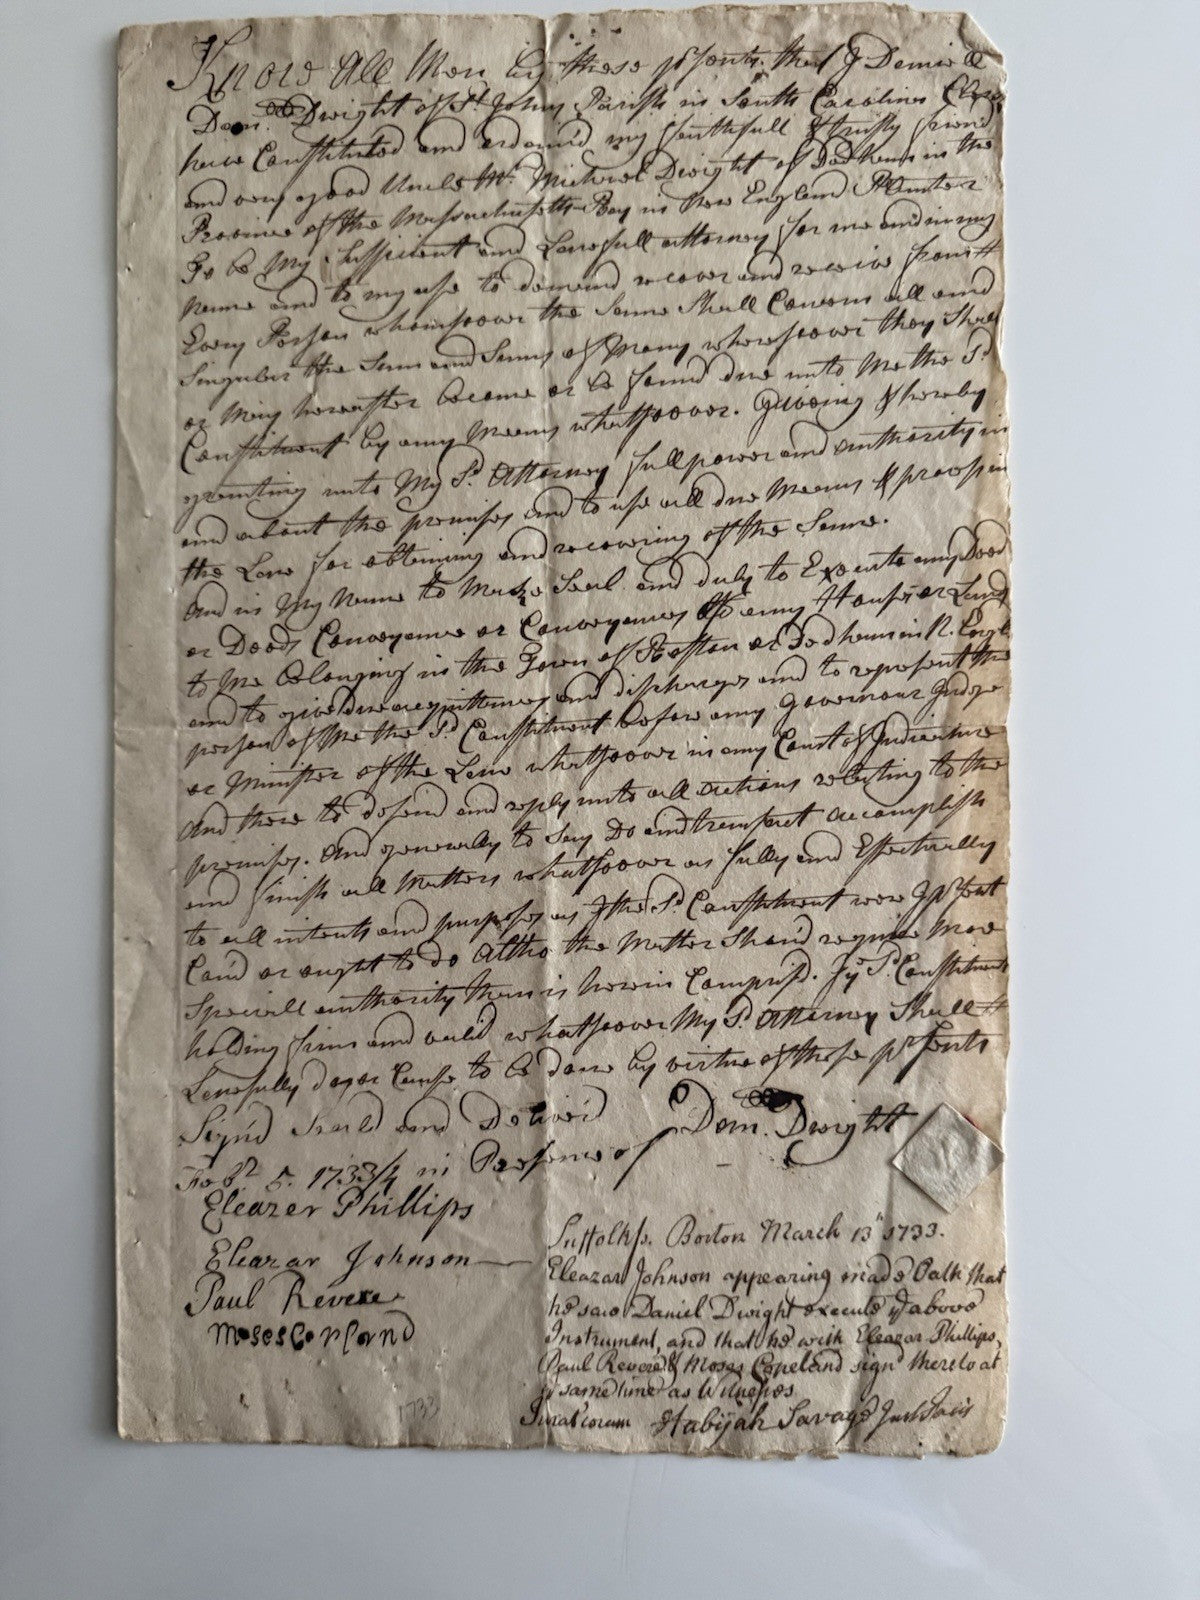 Know All Men by these p.rsents. that I Daniell
Dan. Dwight of St. Johns Parish in South Carolina Clerk
have Constituted and ordain'd my faithfull & trusty friend
and very good Uncle Mr. Michael Dwight of Dedham in the
Province of the Massachusetts-Bay in New England Planter
To be My Sufficient and Lawfull attorney for me and in my
name and to my use to demand recover and receive from #
Every Person whomsoever the same Shall Concern all and
Singular the Sum and Sums of Mony wheresoever they Shall
or May hereafter become or be found due unto Me the Sd.
Constituent by any Means whatsoever. Giveing & hereby
granting unto My Sd. Attorney full power and authority in
and about the premises and to use all due Means & process in
the Law for obtaining and recovering of the Same.
And in My Name to Make Seal and duly to Execute any Deed
or Deeds Conveyance or Conveyances of any Houses or Land
to Me belonging in the Town of Boston or Dedham in N. Engl.
and to give due acquittances and discharges and to represent the
person of Me the Sd. Constituent before any Governour Judge
or Minister of the Law whatsoever in any Court of Judicature
And there to defend and reply unto all actions relating to the
premises. And generally to Say Do and transact accomplish
and finish all Matters whatsoever as fully and Effectually
to all intents and purposes as I the Sd. Constituent were I p.rsent
Cou'd or ought to do Altho the Matter Shou'd require More
Speciall authority than is herein Compris'd. I ye. Sd. Constituent
holding firm and valid whatsoever My Sd. Attorney Shall #
Lawfully do, or Cause to be done by virtue of these p.rsents
Sign'd Seal'd and Deliver'd
Dan. Dwight
Febr. 5. 1733/4 in Presence of
Eleazer Phillips
Eleazar Johnson
Paul Revere
Moses Copland
Suffolk ss. Boston March 13th 1733.
Eleazar Johnson appearing made Oath that
he saw Daniel Dwight execute ye above
Instrument, and that he with Eleazar Phillips,
Paul Revere & Moses Copeland sign'd thereto at
ye same time as Witnesses
Jurat coram Habijah Savage Just Pacis
1733